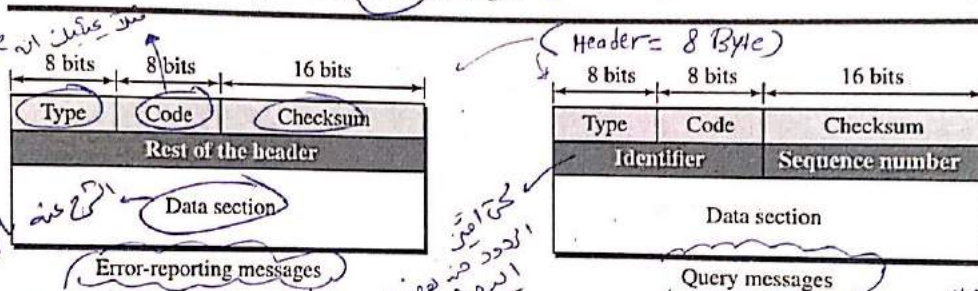 (Header = 8 Byte)
8 bits 8 bits 16 bits
Type Code Checksum
Rest of the header
Data section
Error-reporting messages
8 bits 8 bits 16 bits
Type Code Checksum
Identifier Sequence number
Data section
Query messages